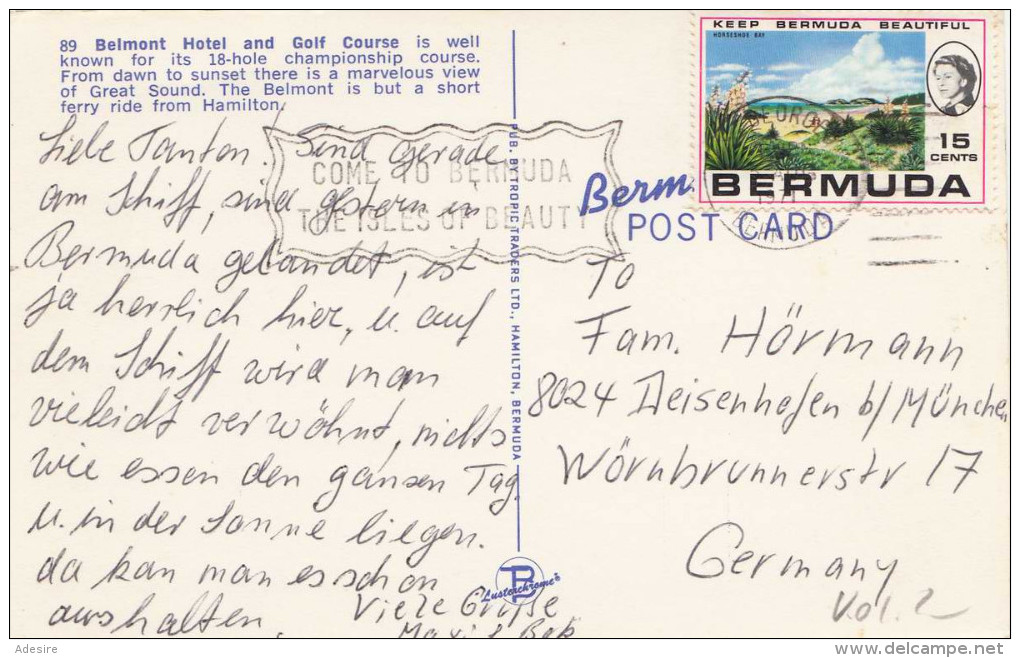 89 Belmont Hotel and Golf Course is well
known for its 18-hole championship course.
From dawn to sunset there is a marvelous view
of Great Sound. The Belmont is but a short
ferry ride from Hamilton.
Liebe Tanten! Sind gerade
am Schiff, sind gestern in
Bermuda gelandet, ist
ja herrlich hier, u. auf
dem Schiff wird man
vieleicht verwöhnt, nichts
wie essen den ganzen Tag
u. in der Sonne liegen.
da kan man es schon
aushalten.
Viele Grüße
COME TO BERMUDA
THE ISLES OF BEAUTY
PUB. BY TROPIC TRADERS LTD., HAMILTON, BERMUDA
Lusterchrome
KEEP BERMUDA BEAUTIFUL
HORSESHOE BAY
15
CENTS
BERMUDA
Berm.
POST CARD
To
Fam. Hörmann
8024 Deisenhofen b/München
Wörnbrunnerstr 17
Germany
Vol. 2
Adesire
delcampe.net